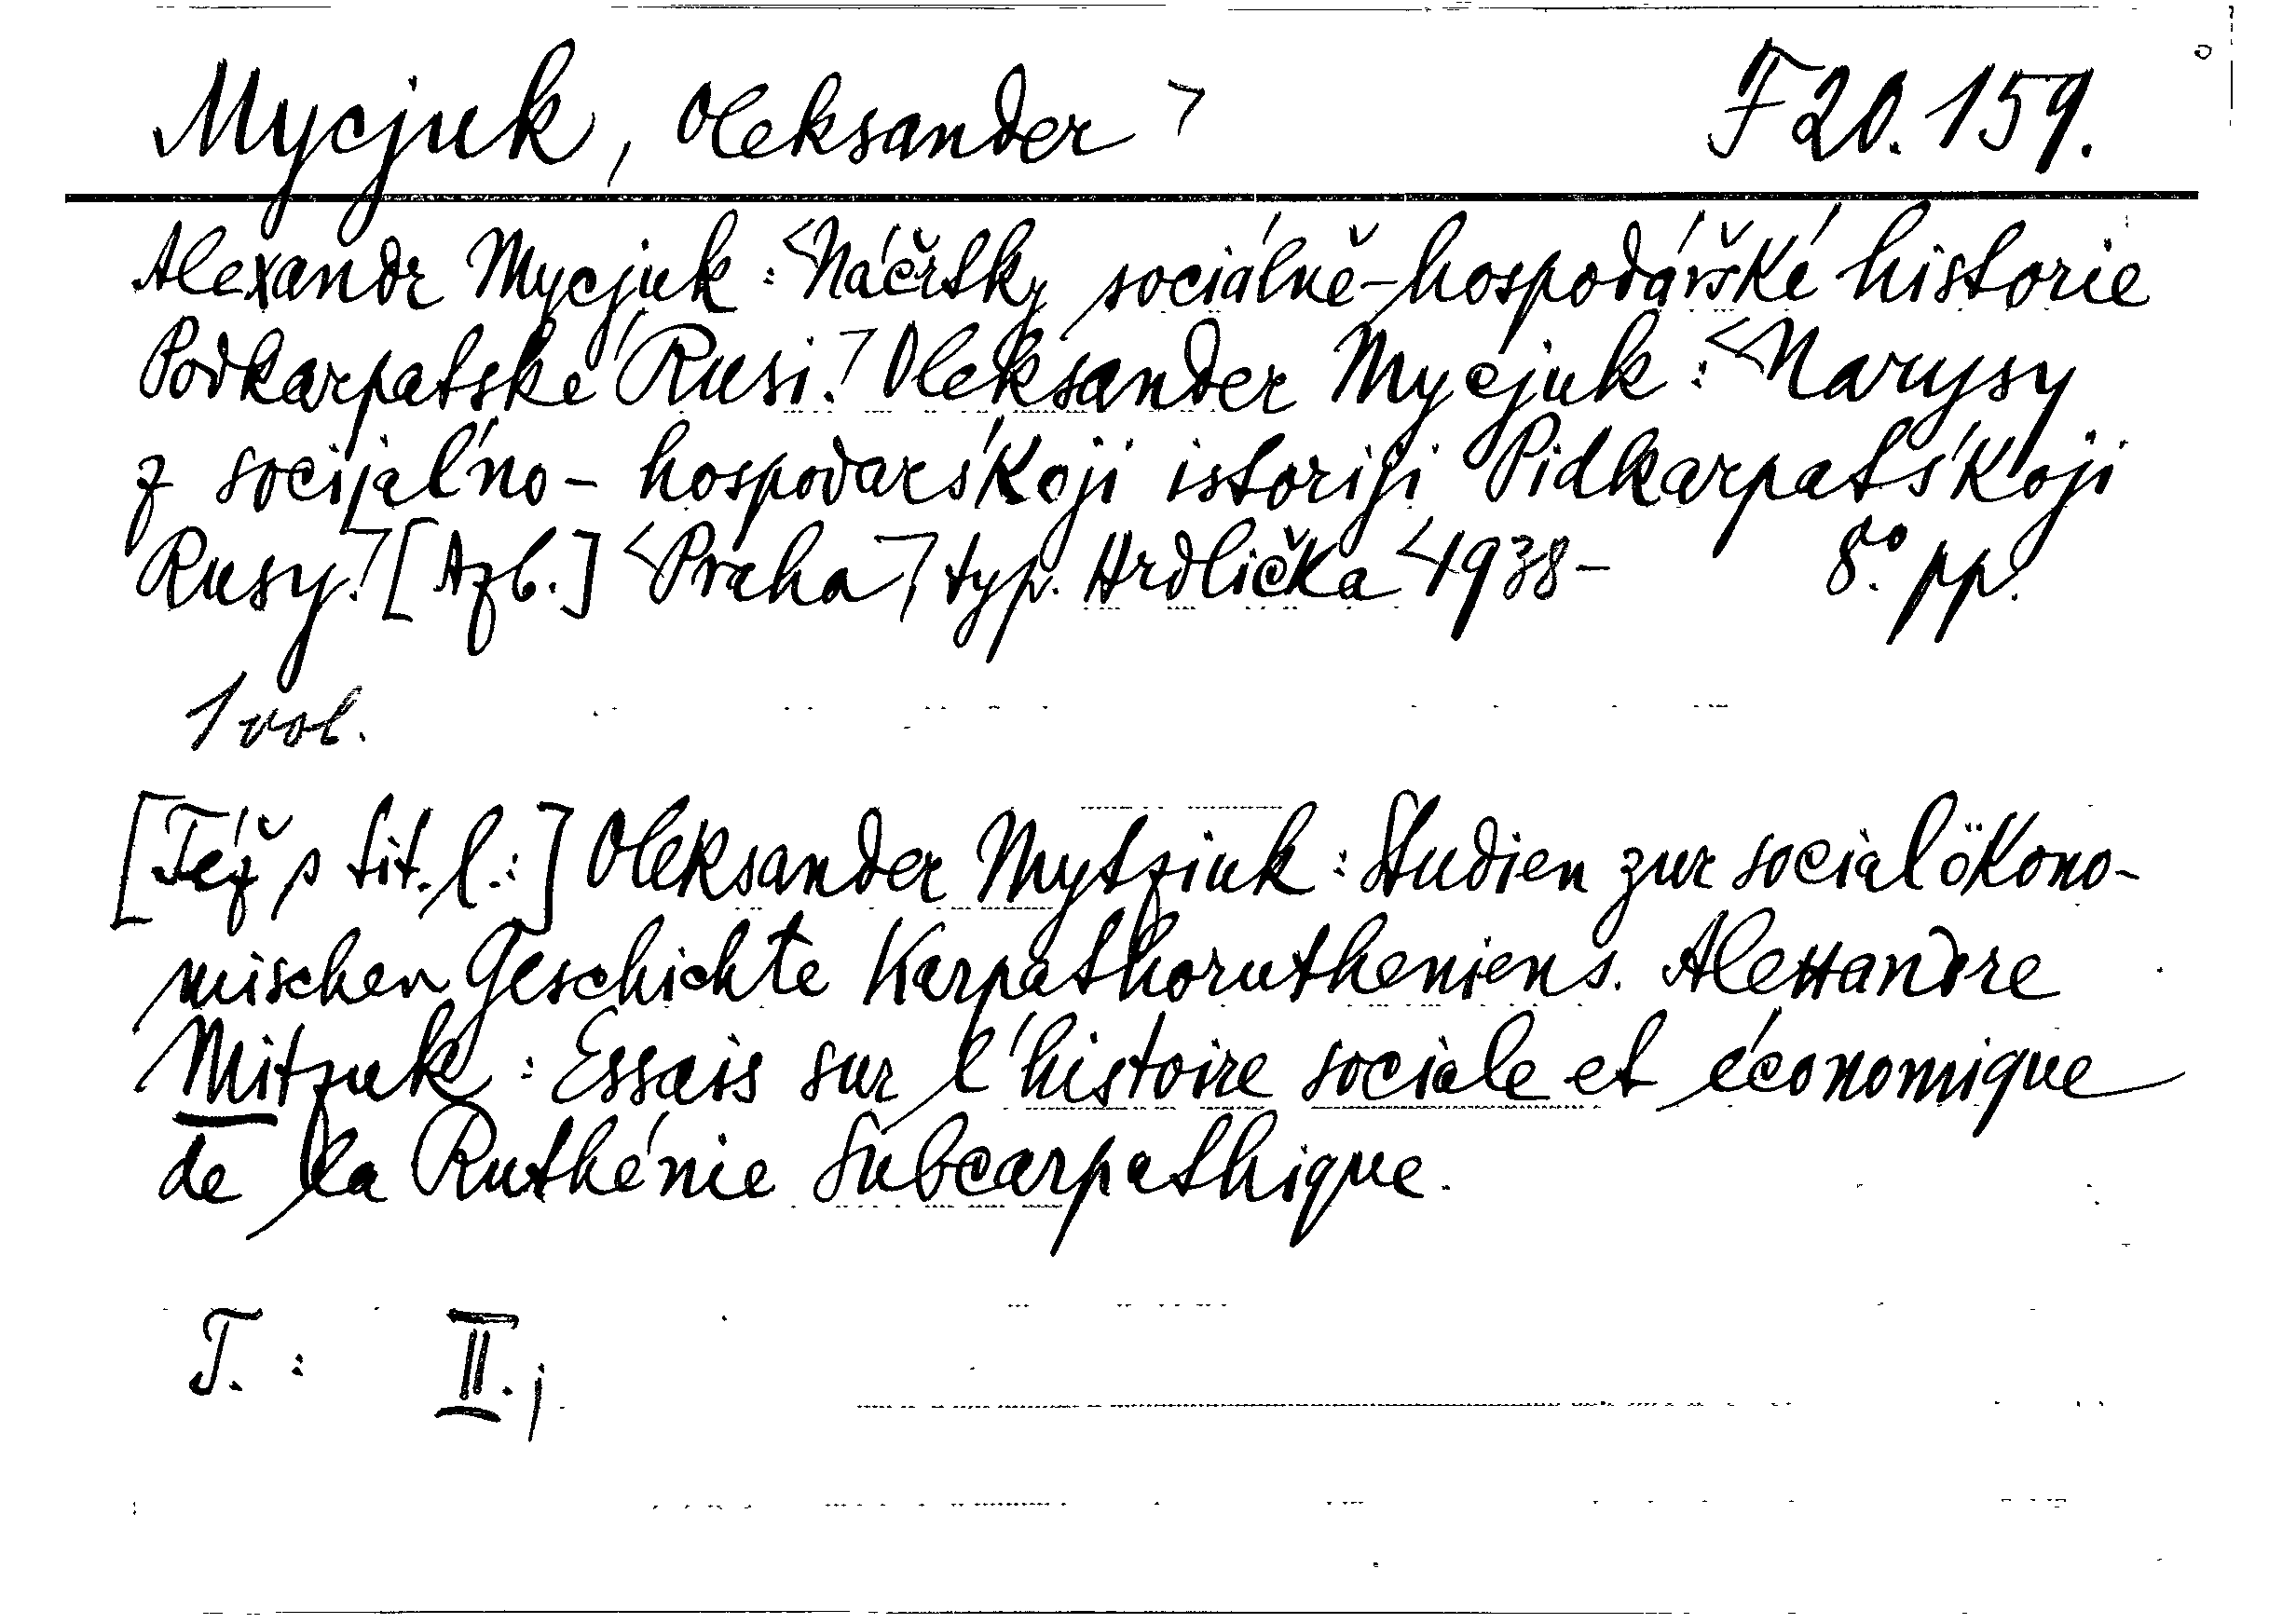 Mycjuk, Oleksander ⁊ F 20.159.
Alexandr Mycjuk: <Náčrtky sociálně-hospodářské historie
Podkarpatské Rusi.⁊ Oleksander Mycjuk: <Narysy
z socijal'no-hospodars'koji istoriji Pidkarpats'koji
Rusy.⁊ [Azb.] <Praha⁊, typ. Hrdlička <1938- 8.° pp.
1 vol.
[Též s tit. l.:] Oleksander Mytziuk: Studien zur socialökono-
mischen Geschichte Karpathorutheniens. Alexandre
Mitzuk: Essais sur l'histoire sociale et économique
de la Ruthénie Subcarpathique.
T.: II.;